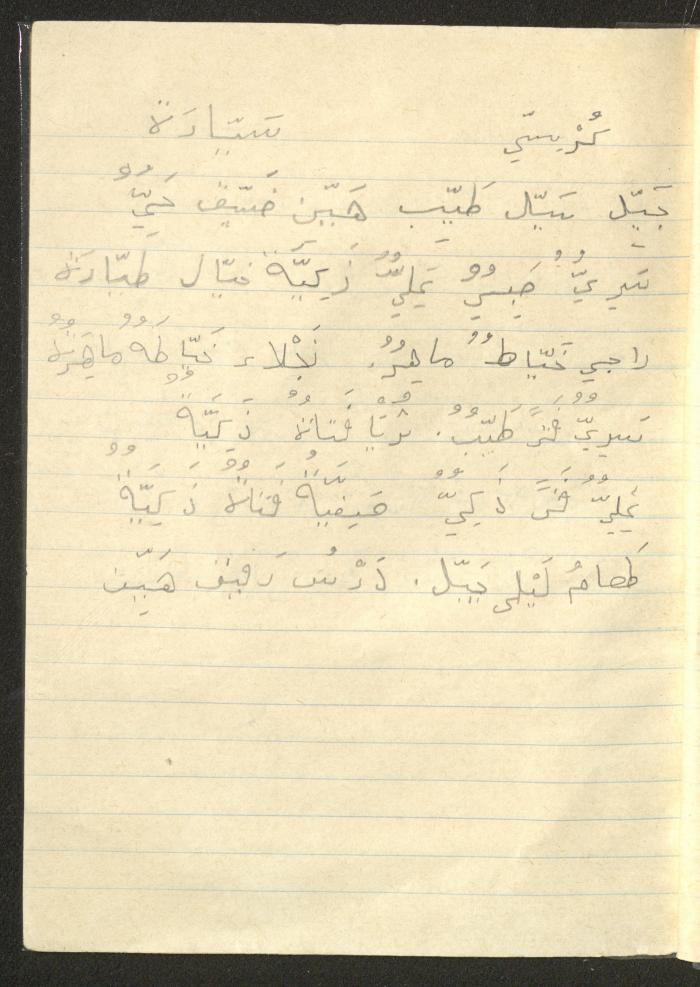 كُرْسِيّ سَيّارَة
جَيّل سَيّل طَيِّب هَيِّن ضَيِّق حَيٌّ
سَرِيٌّ صَبِيٌّ عَلِيٌّ ذَكِيَّة خَيّال طَيّارَة
راجي خَيّاطٌ ماهِرٌ. نَجْلاء خَيّاطَةٌ ماهِرَةٌ
سَرِيٌّ فَتًى طَيِّبٌ. ثُرَيّا فَتاةٌ ذَكِيَّةٌ
عَلِيٌّ فَتًى ذَكِيٌّ صَفِيَّةُ فَتاةٌ ذَكِيَّةٌ
طَعامُ لَيْلى جَيِّل. دَرْسُ رَفيق هَيِّن